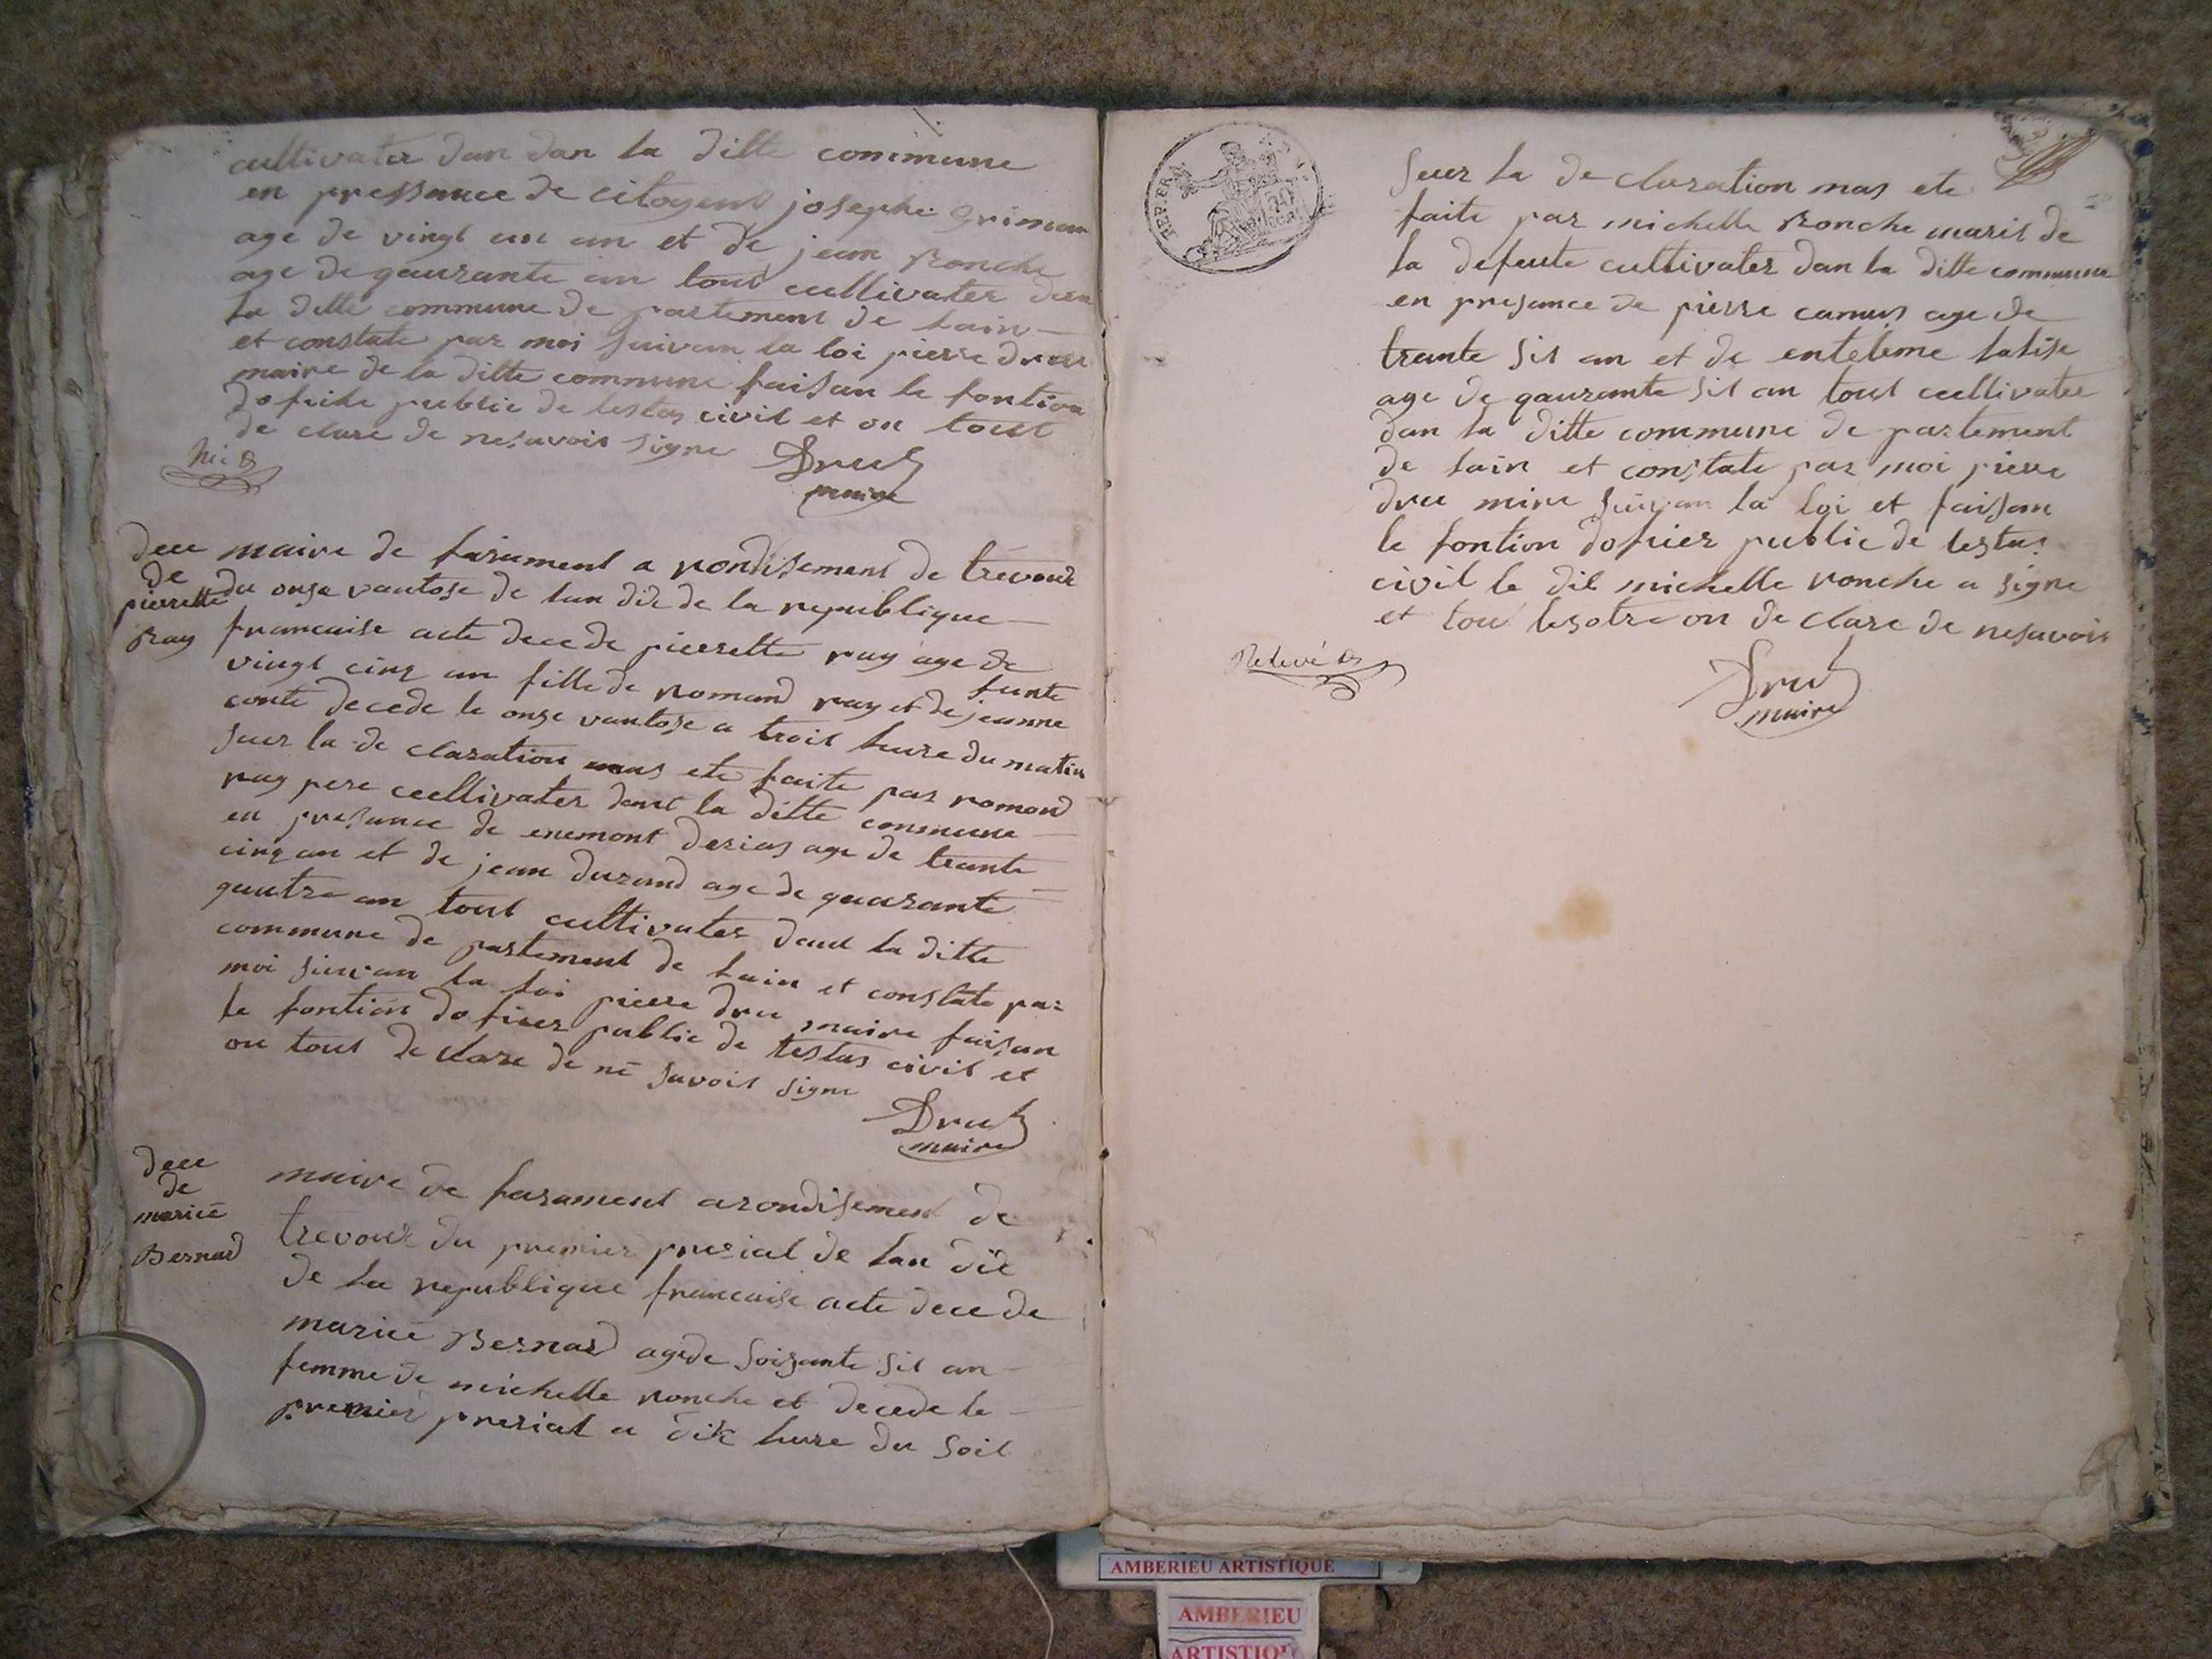 cultivater dan dan la ditte commune
en pressance de citogent josephe griman
age de vingt un an et de jean Ronche
age de gaurante an tout cultivater dan
la ditte commune de partement de lain
et constate par moi suivan la loi pierre dru
maire de la ditte commune faisan le fontion
dofisie public de lestas civil et on tout
de clare de nesavoir signe
Dru
maire
dece
de
pierrette
Ray
maire de farament a rondisement de trevoux
du onse vantose de lan dix de la republique
francaise acte dece de pierrette ray age de
vingt cinq an fille de romand ray et de jeanne
conte decede le onse vantose a troit heure du matin
suer la de claration mas ete faite par romand
ray pere cultivater dant la ditte commune
en presance de enemont derias age de trante
cinq an et de jean durand age de gaurante
quatre an tout cultivater dant la ditte
commune de partement de lain et constate par
moi suivan la loi pierre dru maire faisan
le fontion dofiser public de lestas civil et
on tout de clare de ne savoir signe
Dru
maire
dece
de
marie
Bernard
maire de farament arondisement de
trevoux du premier prerial de lan dix
de la republique francaise acte dece de
marie Bernard age de soisante sit an
femme de michelle ronche et decede le
premier prerial a dix hure du soit
REP. FRA.
suer la de claration mas ete
faite par michelle Ronche marit de
la defente cultivater dan la ditte commune
en presance de pierre camus age de
trante sit an et de enteleme
age de gaurante sit an tout cultivater
dan la ditte commune de partement
de lain et constate par moi pierre
dru mire suivan la loi et faisan
le fontion dofisier public de lestas
civil le dit michelle ronche a signe
et tou lesotre on de clare de nesavoir
Relevé
Dru
maire
AMBERIEU ARTISTIQUE
AMBERIEU
ARTISTIQU